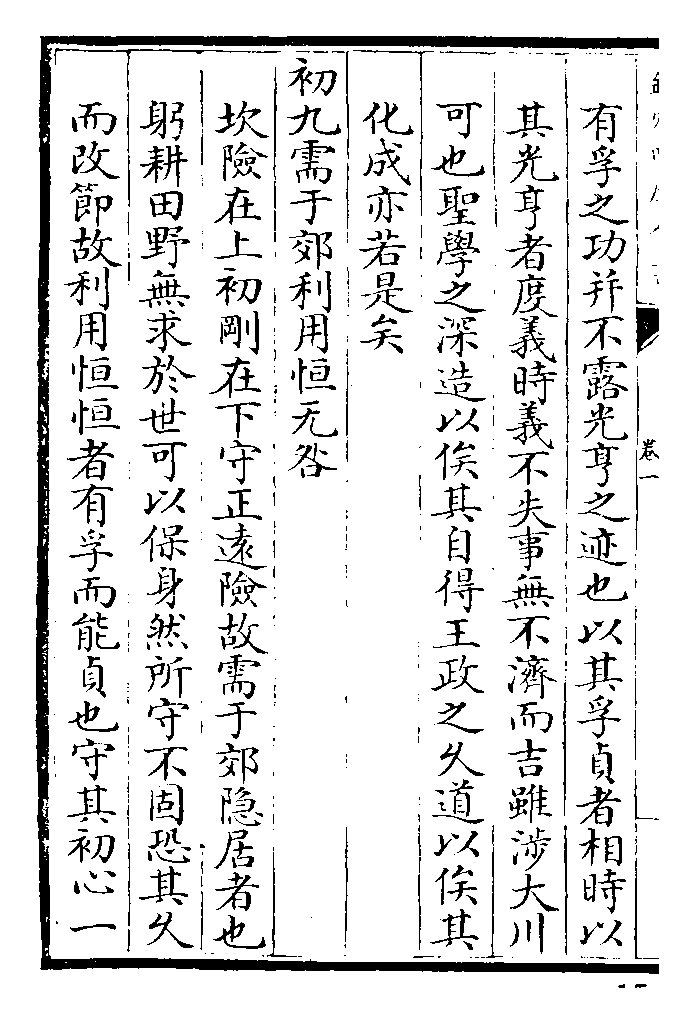 有孚之功并不露光亨之迹也以其孚貞者相時以
其光亨者度義時義不失事無不濟而吉雖涉大川
可也聖學之深造以俟其自得王政之久道以俟其
化成亦若是矣
初九需于郊利用恒无咎
坎險在上初剛在下守正逺險故需于郊隐居者也
躬耕田野無求於世可以保身然所守不固恐其久
而改節故利用恒恒者有孚而能貞也守其初心一
卷一